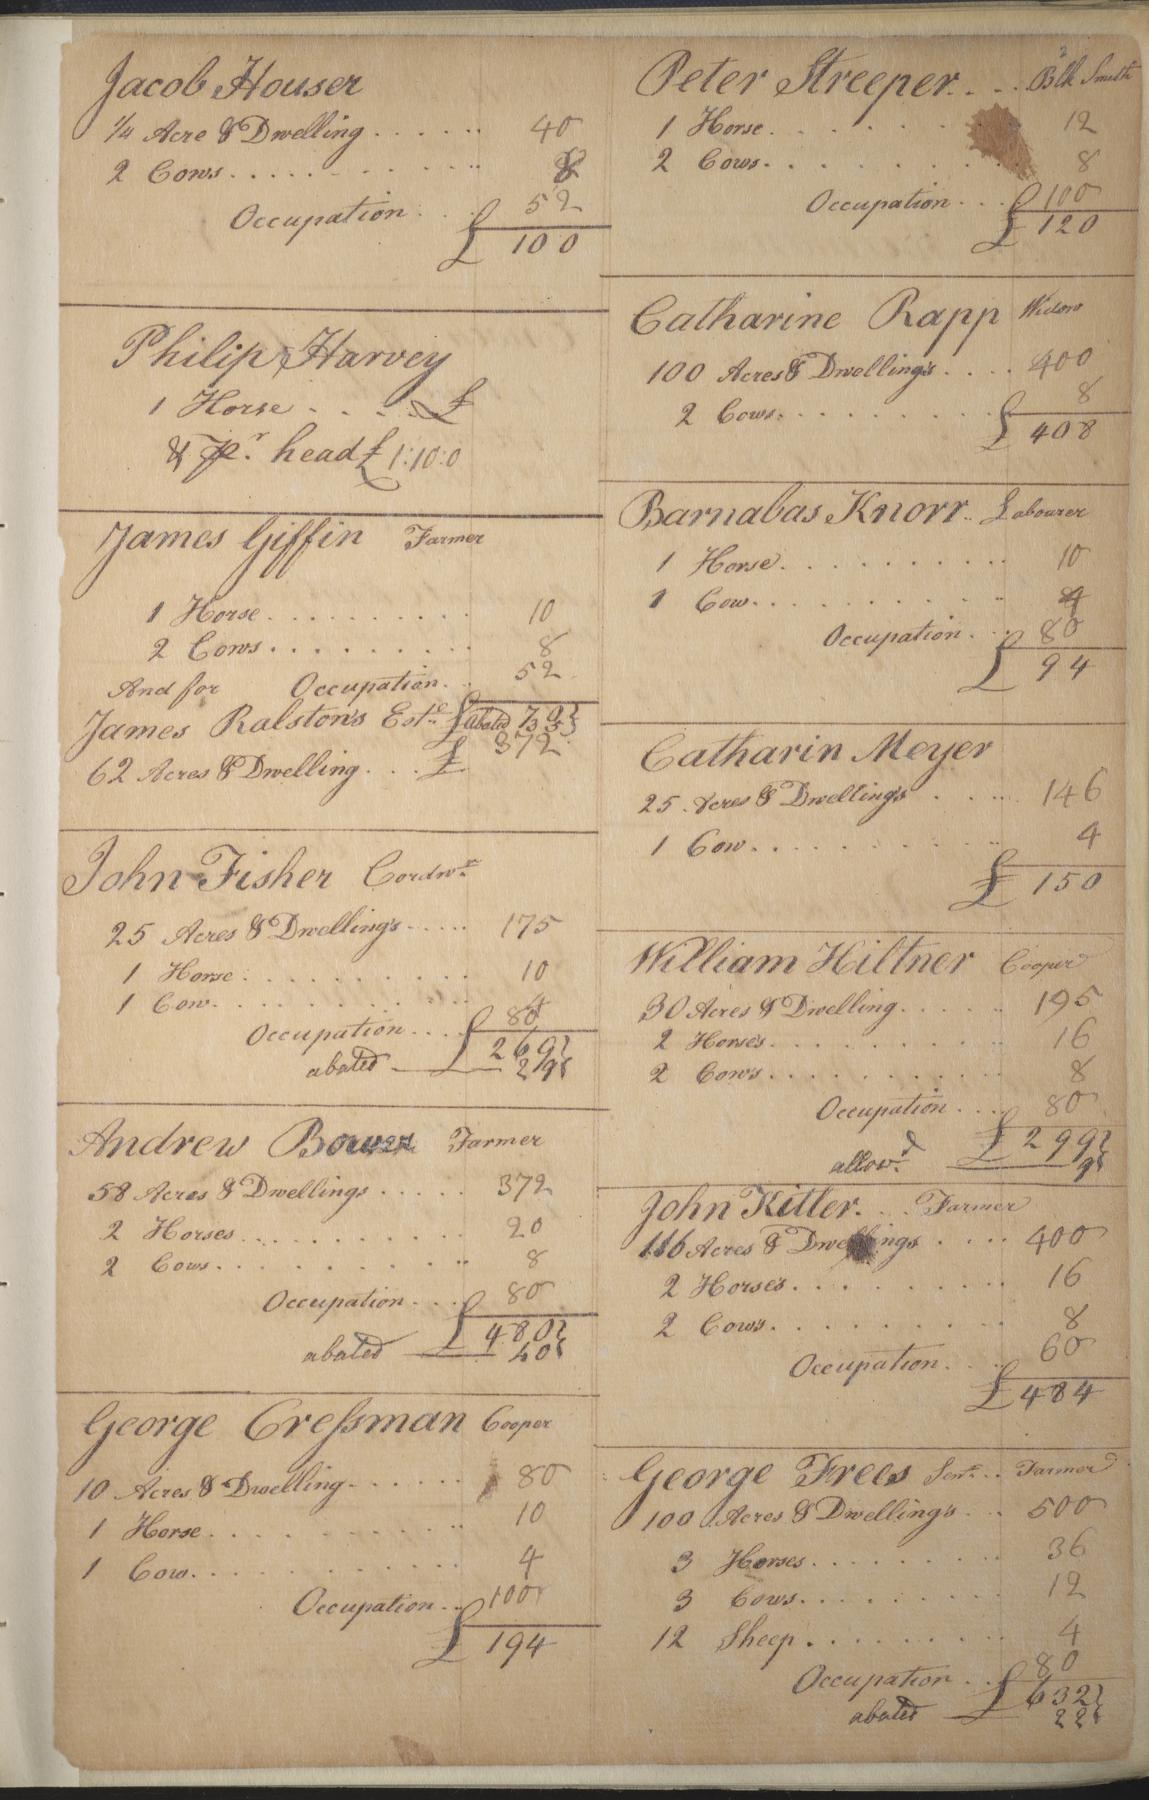 Jacob Houser
1/4 Acre & Dwelling . . . . . . 40
2 Cows . . . . . . . . . . 8
Occupation . . . 52
£ 100
Philip Harvey
1 Horse . . . . . £
& pr. head £ 1:10:0
James Giffin Farmer
1 Horse . . . . . . . . . . 10
2 Cows . . . . . . . . . 8
And for Occupation . . 52
James Ralston's Este £ abated
62 Acres & Dwelling . . . £ 372
John Fisher Cordwr
25 Acres & Dwelling's . . . . . 175
1 Horse . . . . . . . . . . 10
1 Cow . . . . . . . . . . 4
Occupation . . . . 80
£ 269
abated 29
Andrew Bower Farmer
58 Acres & Dwellings . . . . . 372
2 Horses . . . . . . . . . . 20
2 Cows . . . . . . . . . . 8
Occupation . . . 80
£ 480
abated 40
George Cressman Cooper
10 Acres & Dwelling . . . . . . 80
1 Horse . . . . . . . . . . 10
1 Cow . . . . . . . . . . 4
Occupation . . 100
£ 194
Peter Streeper . . . Blk Smith
1 Horse . . . . . . . . 12
2 Cows . . . . . . . . . 8
Occupation . . . 100
£ 120
Catharine Rapp Widow
100 Acres & Dwelling's . . . . 400
2 Cows . . . . . . . . . 8
£ 408
Barnabas Knorr . . Labourer
1 Horse . . . . . . . . . . 10
1 Cow . . . . . . . . . . 4
Occupation . . . 80
£ 94
Catharin Meyer
25 Acres & Dwelling's . . . . . 146
1 Cow . . . . . . . . . . 4
£ 150
William Hiltner Cooper
30 Acres & Dwelling . . . . . . 195
2 Horse's . . . . . . . . . . 16
2 Cow's . . . . . . . . . . 8
Occupation . . . 80
£ 299
allowd 9
John Kitler . . . Farmer
116 Acres & Dwellings . . . . 400
2 Horse's . . . . . . . . . 16
2 Cow's . . . . . . . . . 8
Occupation . . . . 60
£ 484
George Frees Senr . . Farmer
100 Acres & Dwelling's . . . 500
3 Horses . . . . . . . . 36
3 Cows . . . . . . . . . 12
12 Sheep . . . . . . . . . 4
Occupation . . 80
£ 632
abated 22